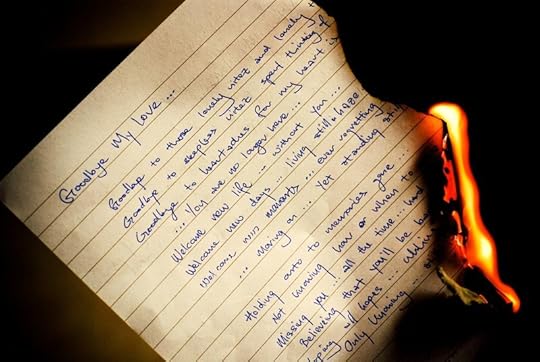 Goodbye My Love ...
Goodbye to those lonely nitez and lonely
Goodbye to sleepless nitez spent thinking of
Goodbye to heartaches for my heart is
... You are no longer here ...
Welcome new life ... without you ...
Welcome new days ... living still a haze
Welcome new moments ... ever regretting
... Moving on ... yet standing still
Holding onto to memories gone ...
Not knowing how or when to
Missing you ... all the time ...
Believing that you'll be
will hopes ...
Only knowing